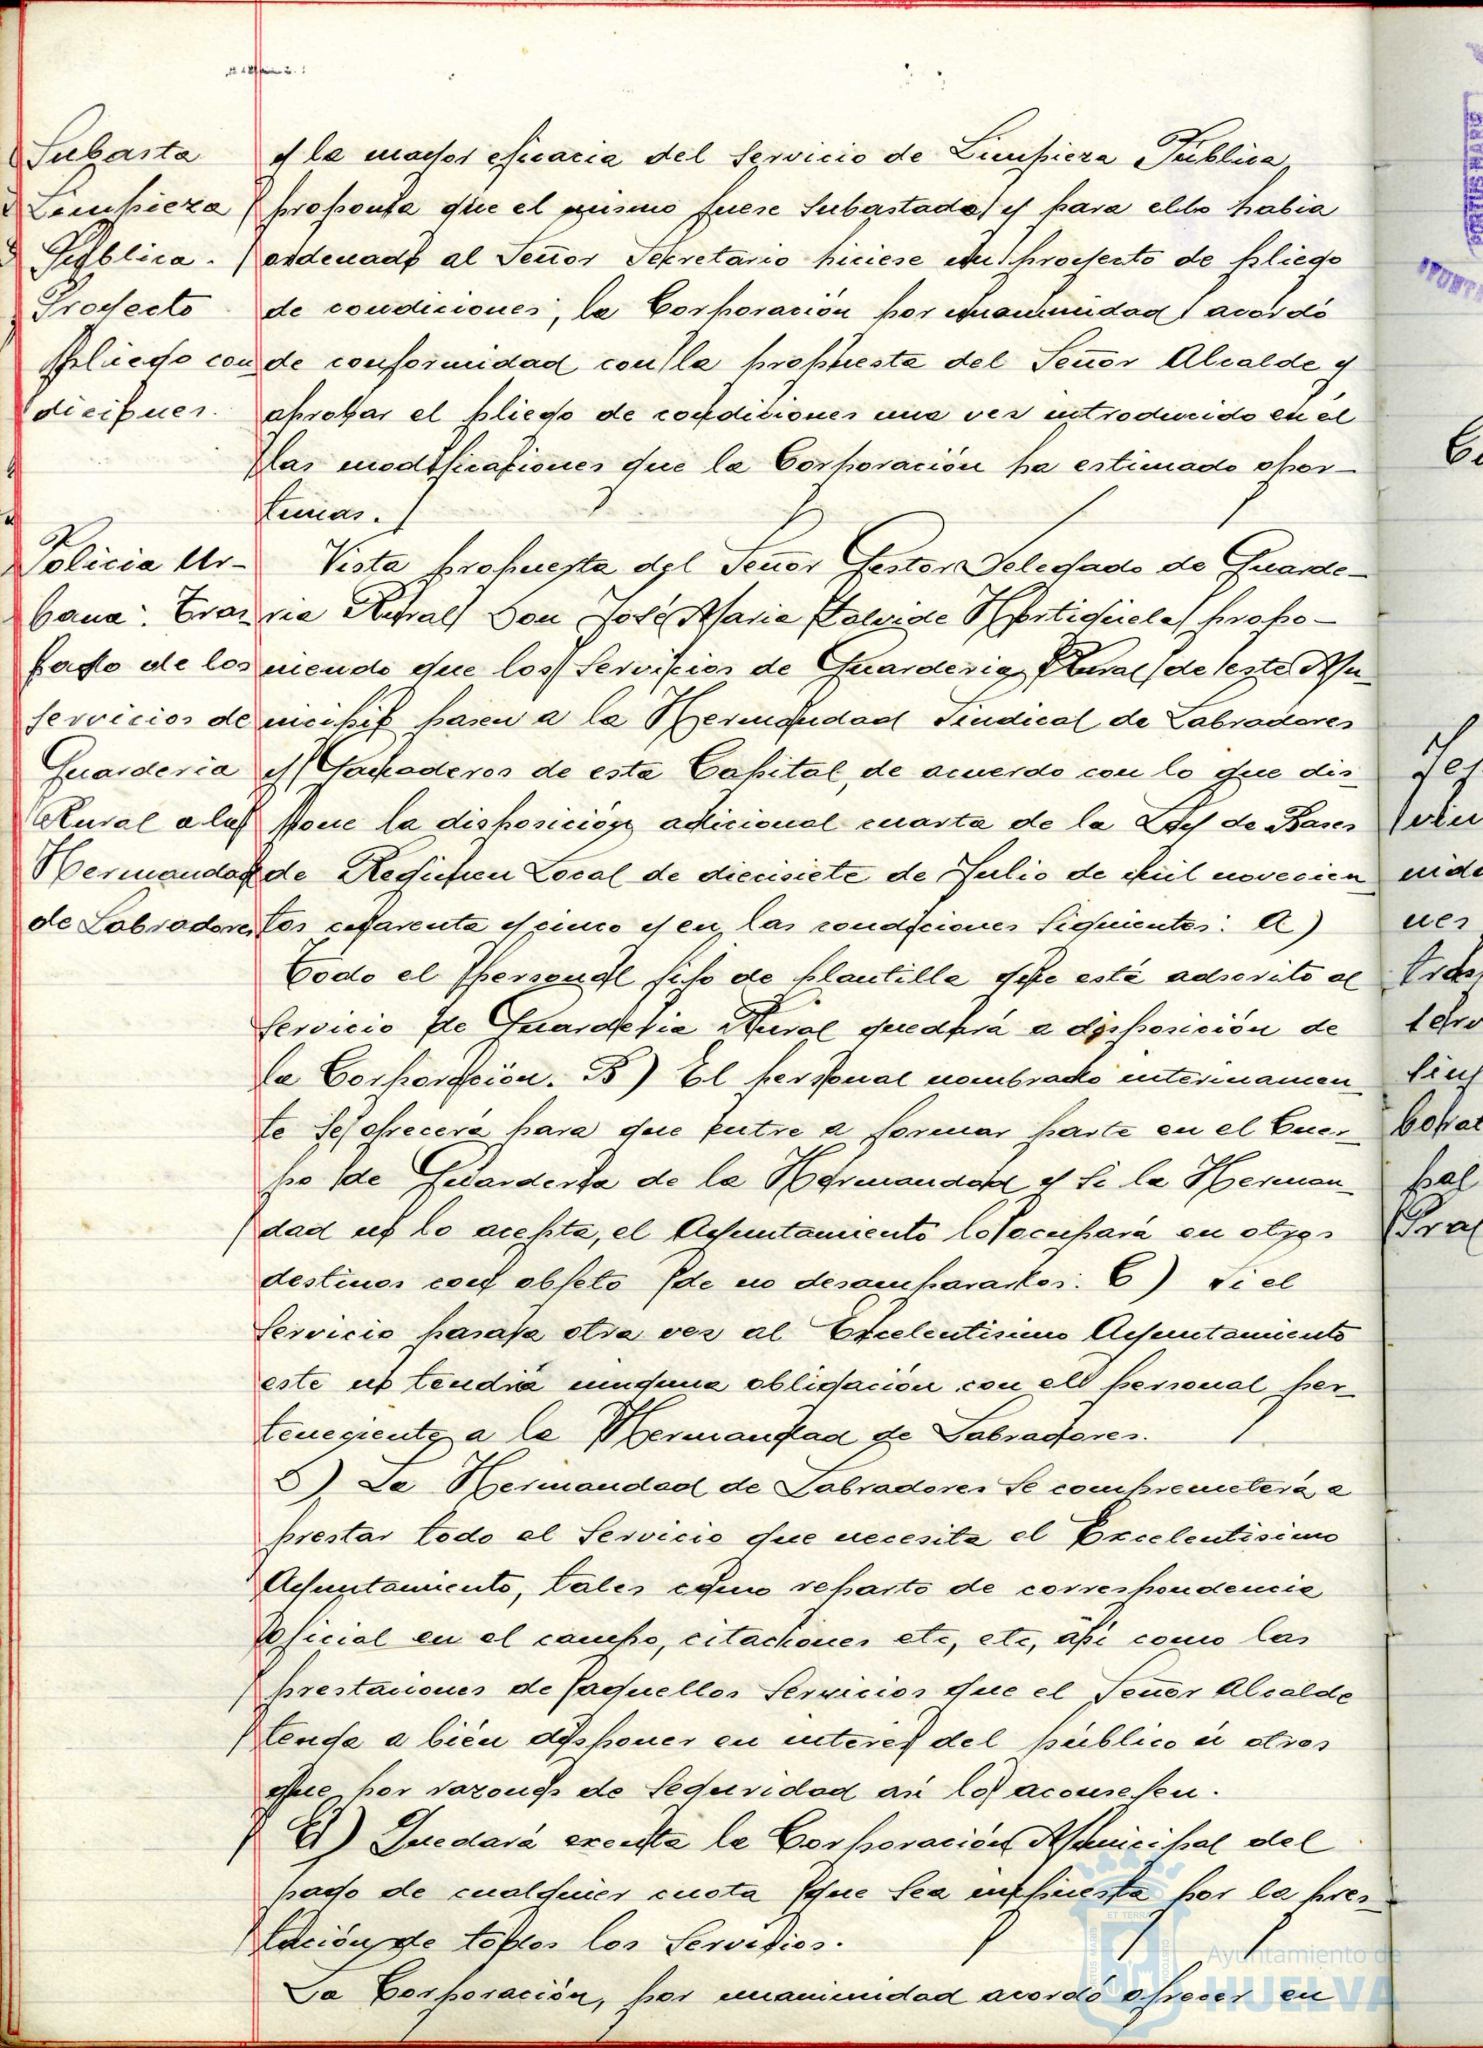 Subasta
Limpieza
Pública.
Proyecto
pliego con
diciones.
y la mayor eficacia del servicio de Limpieza Pública,
proponía que el mismo fuese subastado y para ello habia
ordenado al Señor Secretario hiciese un proyecto de pliego
de condiciones, la Corporación por unanimidad acordó
de conformidad con la propuesta del Señor Alcalde y
aprobar el pliego de condiciones una vez introducido en él
las modificaciones que la Corporación ha estimado opor-
tunas.
Policia Ur-
bana. Tras
paso de los
servicios de
Guarderia
Rural a la
Hermandad
de Labradores
Vista propuesta del Señor Gestor Delegado de Guarde-
ria Rural Don José Maria Hortigüela propo-
niendo que los servicios de Guarderia Rural de este Mu-
nicipio pasen a la Hermandad Sindical de Labradores
y Ganaderos de esta Capital, de acuerdo con lo que dis-
pone la disposición adicional cuarta de la Ley de Bases
de Regimen Local de diecisiete de Julio de mil novecien
tos cuarenta y cinco y en las condiciones siguientes: A)
Todo el personal fijo de plantilla que está adscrito al
servicio de Guarderia Rural quedará a disposición de
la Corporación. B) El personal nombrado interinamen-
te se ofrecerá para que entre a formar parte en el Cuer-
po de Guarderia de la Hermandad y si la Herman-
dad no lo acepta, el Ayuntamiento lo ocupará en otros
destinos con objeto de no desampararlos. C) Si el
servicio pasara otra vez al Excelentisimo Ayuntamiento
este no tendrá ninguna obligación con el personal per-
teneciente a la Hermandad de Labradores.
D) La Hermandad de Labradores se comprometerá a
prestar todo el servicio que necesita el Excelentisimo
Ayuntamiento, tales como reparto de correspondencia
oficial en el campo, citaciones etc, etc, así como las
prestaciones de aquellos servicios que el Señor Alcalde
tenga a bién disponer en interes del público ú otros
que por razones de seguridad asi lo aconsejen.
E) Quedará exenta la Corporación Municipal del
pago de cualquier cuota que sea impuesta por la pres-
tación de todos los servicios.
La Corporación, por unanimidad acordó ofrecer en
Ayuntamiento de
HUELVA